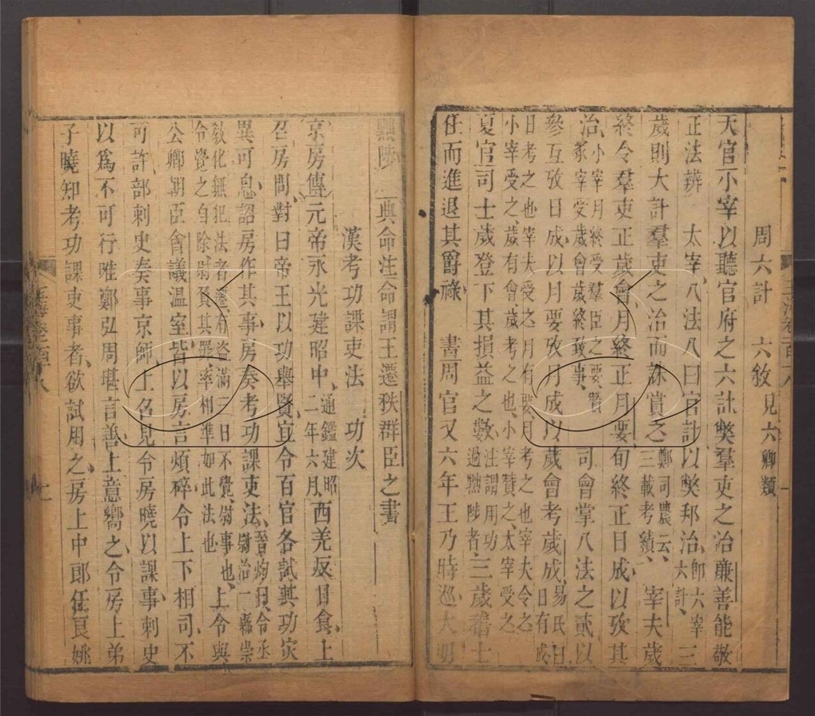 周六計　六敘見六卿類
天官小宰以聽官府之六計獘羣吏之治廉善能敬
正法辨　太宰八法八曰官計以獘邦治卽六宰三大計
歲則大計羣吏之治而誅賞之鄭司農云三載考績　宰夫歲
終令羣吏正歲會月終正月要旬終正日成以攷其
治小宰月終受羣臣之要贊冢宰受歲會歲終致事　司會掌八法之貳以
參互攷日成以月要攷月成以歲會考歲成易氏曰日有成
日考之也宰夫受之月有要月考之也宰夫令之
小宰受之歲有會歲考之也小宰贊之太宰受之
夏官司士歲登下其損益之數注謂用功過黜陟者三歲稽士
任而進退其爵祿　書周官又六年王乃時巡大明
黜陟　典命注命謂王遷秩群臣之書
漢考功課吏法　功次
京房傳元帝永光建昭中通鑑建昭二年六月西羌反日食上
召房問對曰帝王以功舉賢宜令百官各試其功災
異可息詔房作其事房奏考功課吏法晉灼曰令丞尉治一縣崇
教化無犯法者遷有盜滿三日不覺者尉事也
令覺之自除尉負其罪率相準如此法也　上令與
公卿朝臣會議温室皆以房言煩碎令上下相司不
可許部刺史奏事京師上召見令房曉以課事刺史
以爲不可行唯鄭弘周堪言善上意嚮之令房上弟
子曉知考功課吏事者欲試用之房上中郎任良姚